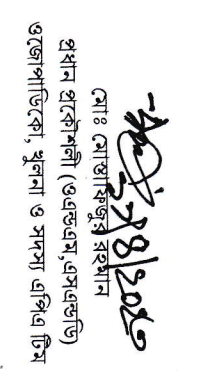 ২১/৪/২০২৫
মোঃ মোস্তাফিজুর রহমান
প্রধান প্রকৌশলী (ওএন্ডএম, এসএন্ডডি)
ওজোপাডিকো, খুলনা ও সদস্য এপিএ টিম